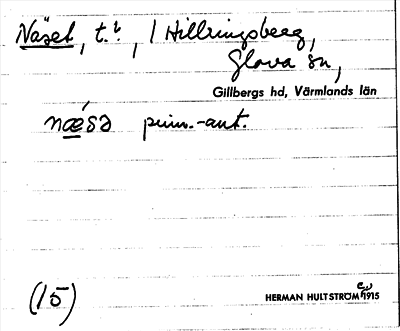 Näset, t.?, / Hillringsberg,
Glava sn,
Gillbergs hd, Värmlands län
næ´sə prim.-ant.
(15)
HERMAN HULTSTRÖM 1915